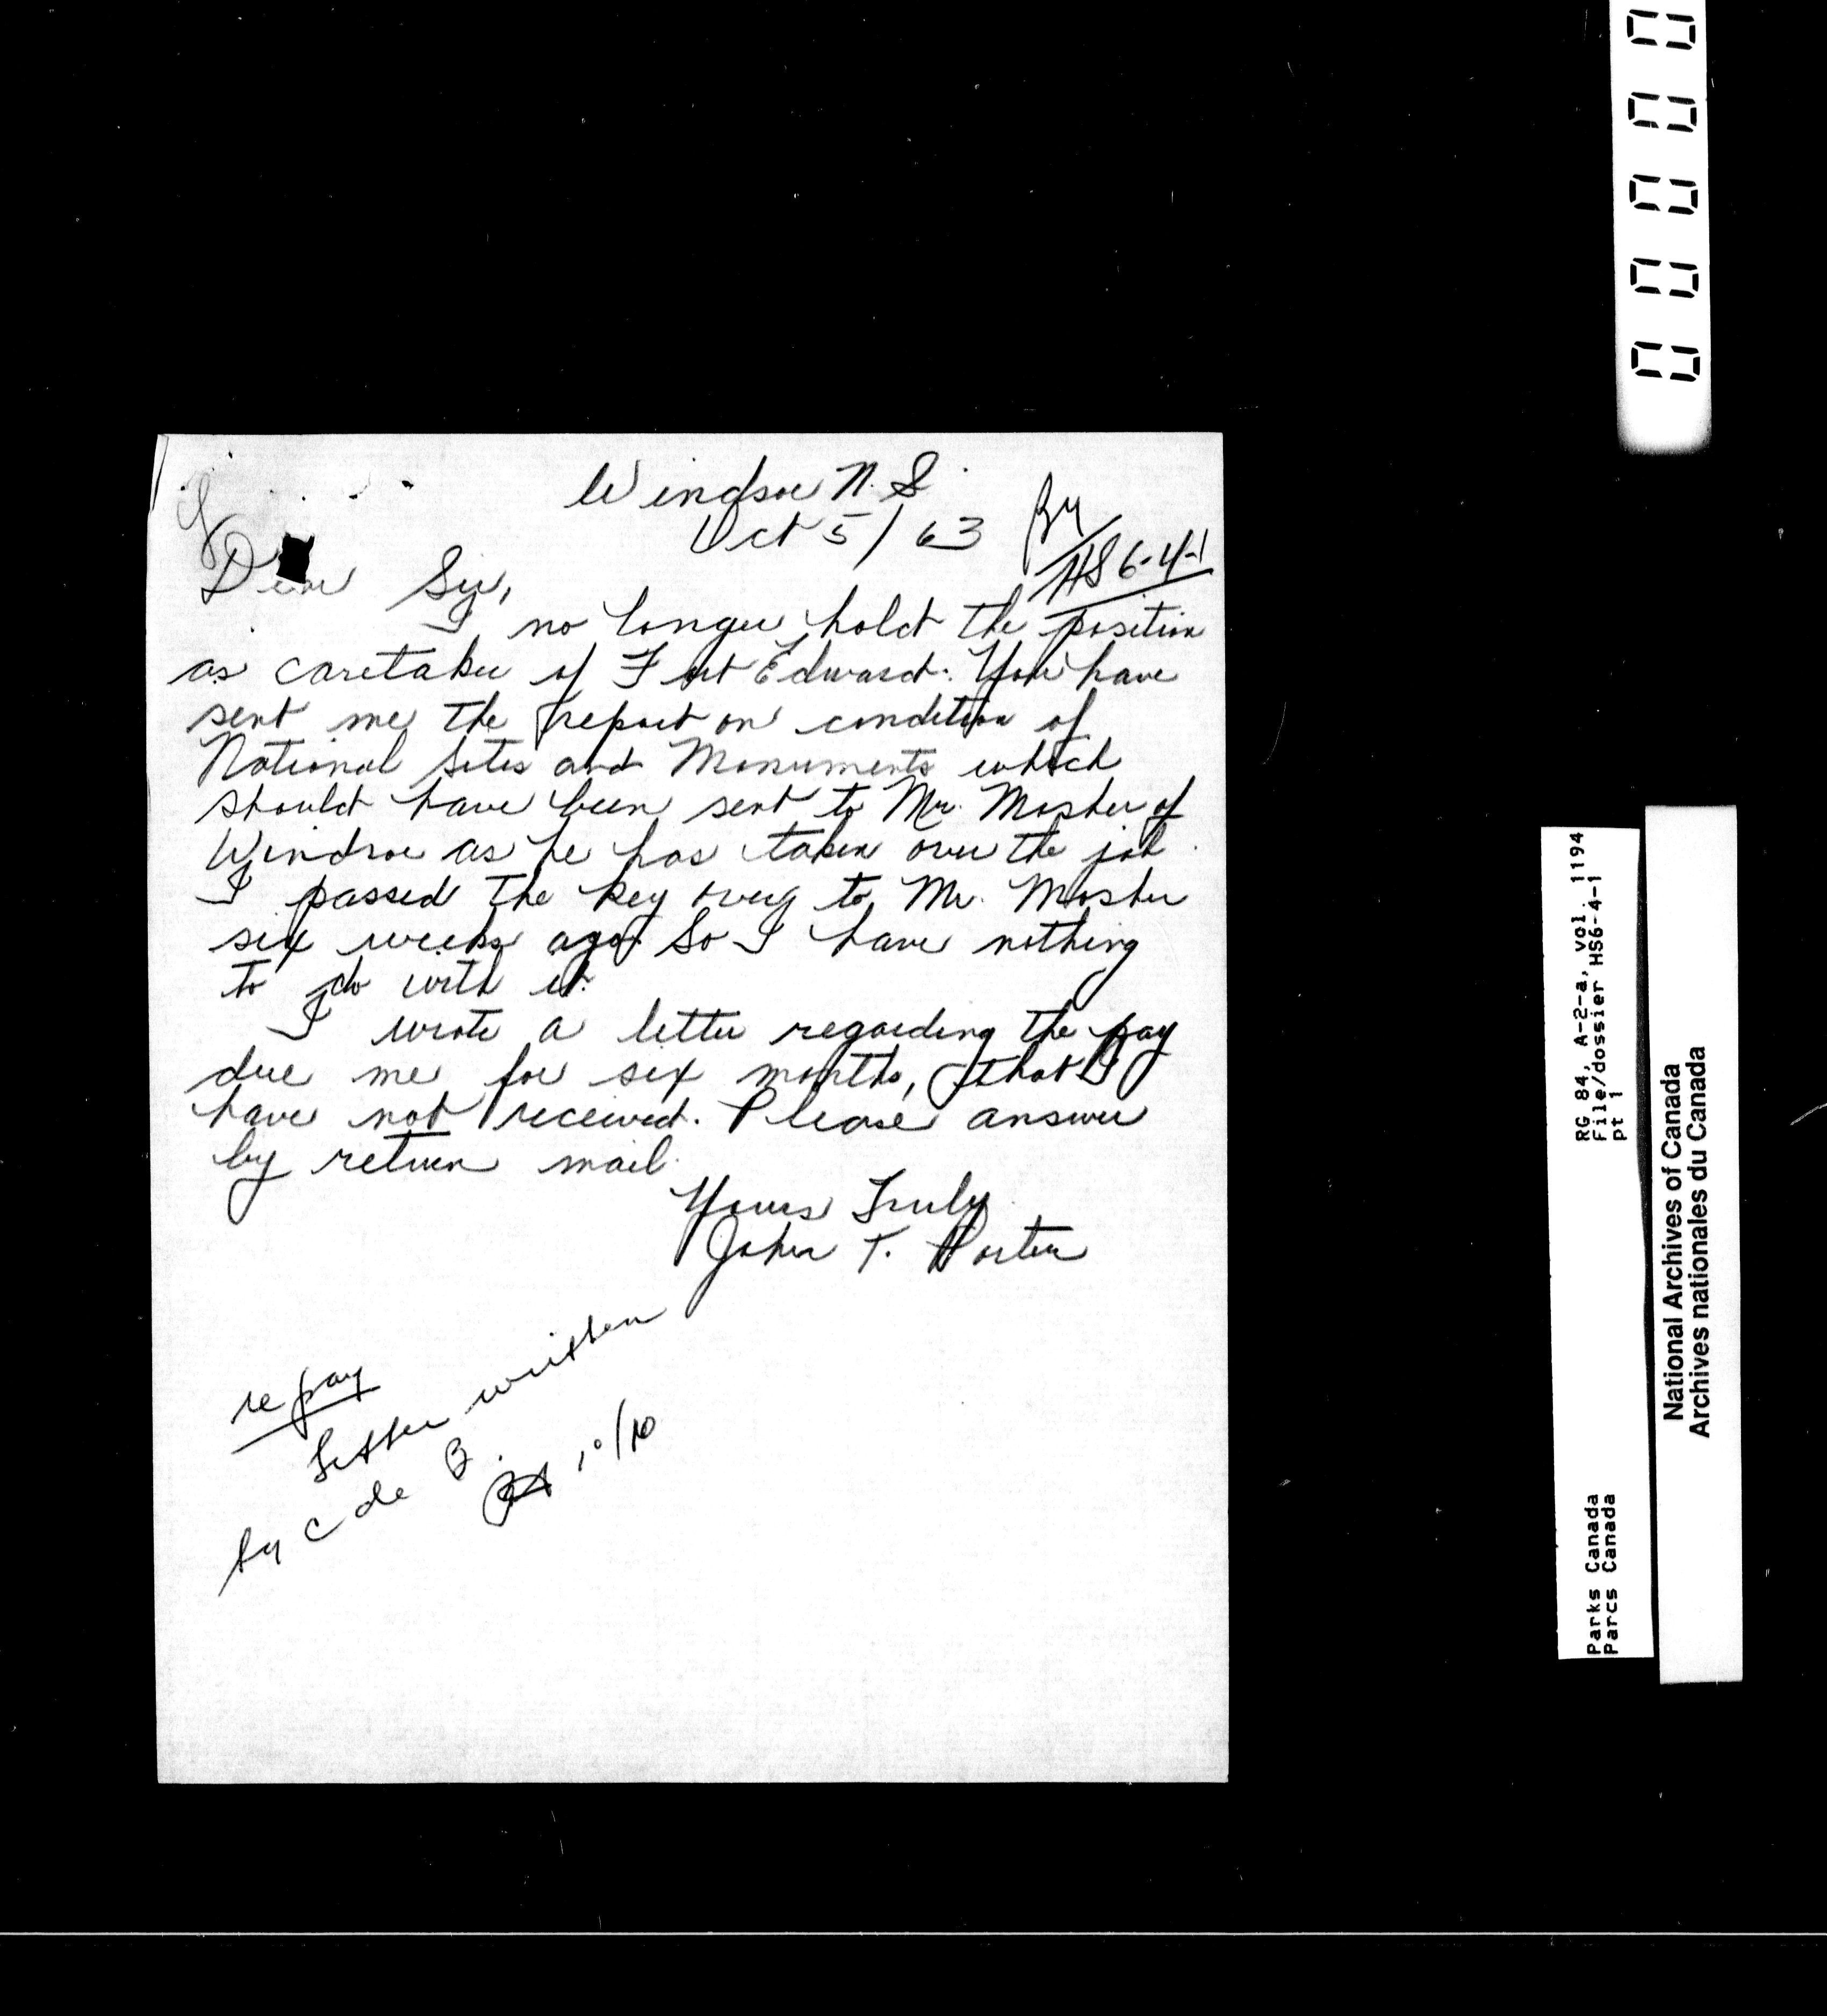 Windsor N. S.
Oct 5 / 63
HS 6-4-1
Dear Sir,
I no longer hold the position
as caretaker of Fort Edward. You have
sent me the report on condition of
National Sites and Monuments which
should have been sent to Mr. Mosher of
Windsor as he has taken over the job.
I passed the key over to Mr. Mosher
six weeks ago. So I have nothing
to do with it.
I wrote a letter regarding the pay
due me for six months, that I
have not received. Please answer
by return mail.
Yours Truly
John T. Porter
re pay
Letter written
by C de B.
10/10
0 0 0 0 0
RG 84, A-2-a, vol. 1194
File/dossier HS6-4-1
pt 1
Parks Canada
Parcs Canada
National Archives of Canada
Archives nationales du Canada